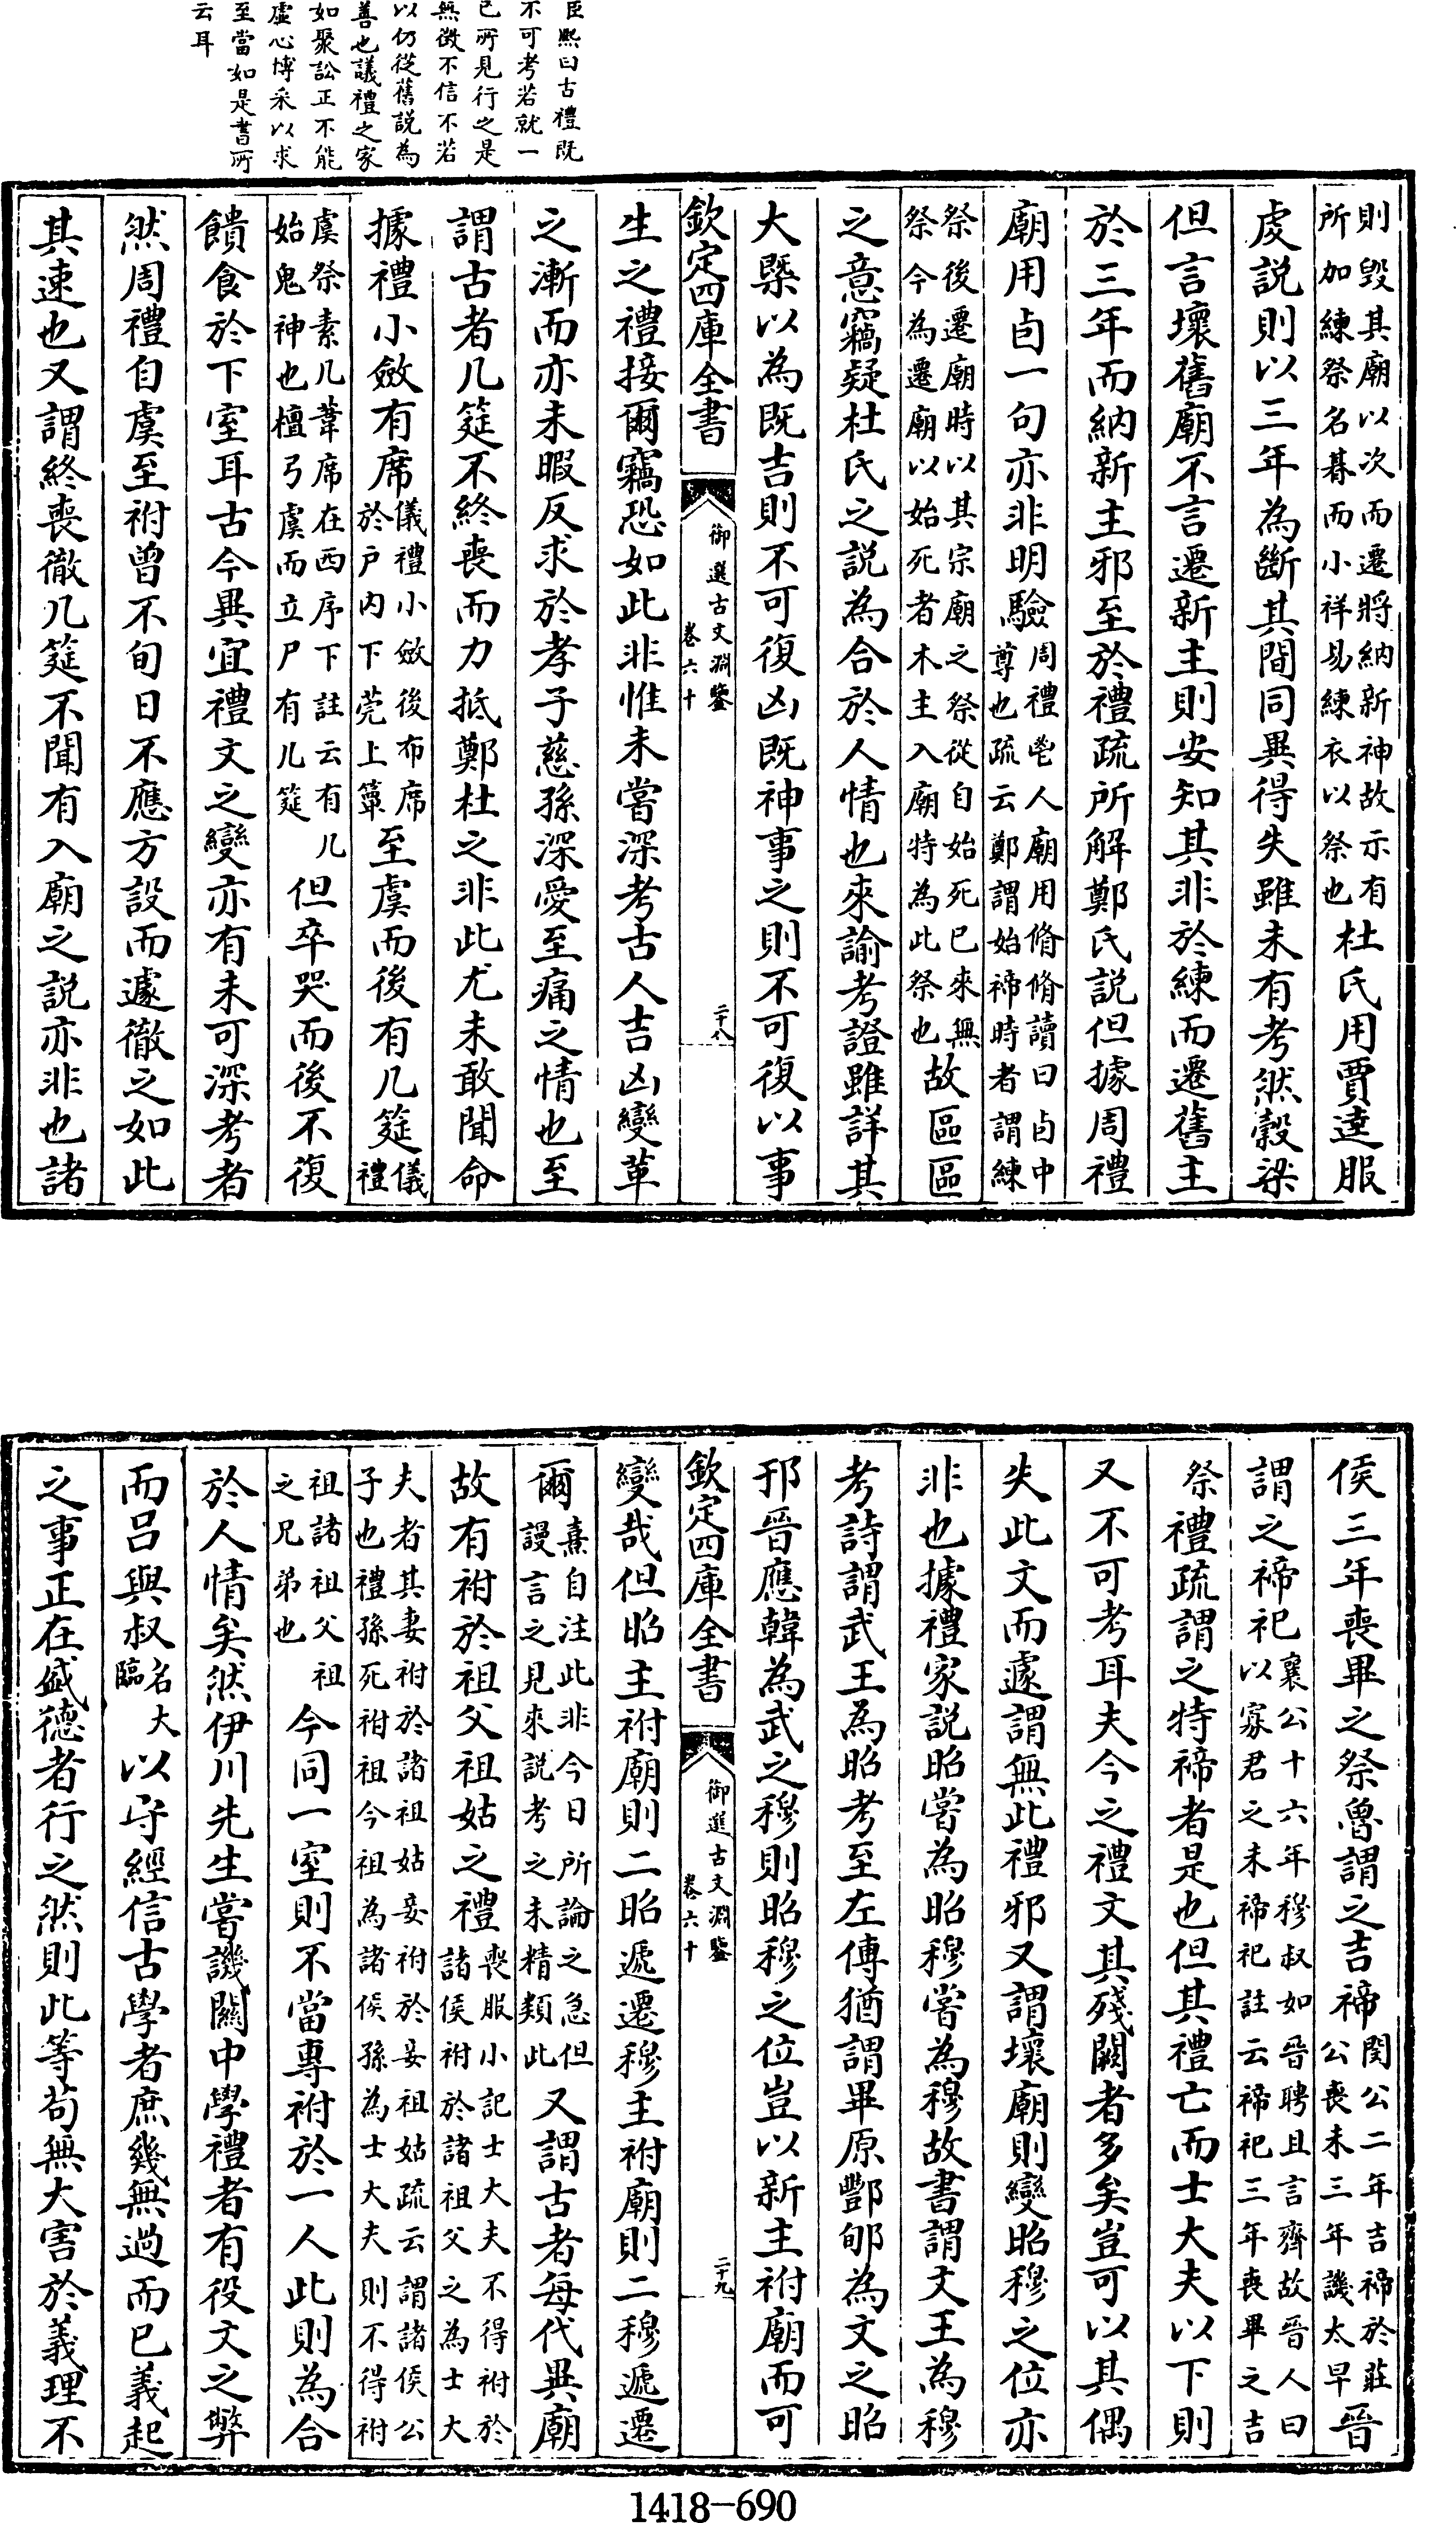 臣熙曰古禮既
不可考若就一
己所見行之是
無徵不信不若
以仍從舊說為
善也議禮之家
如聚訟正不能
虛心博采以求
至當如是書所
云耳
則毀其廟以次而遷將納新神故示有
所加練祭名朞而小祥易練衣以祭也杜氏用賈逵服
虔説則以三年為斷其間同異得失雖未有考然穀梁
但言壞舊廟不言遷新主則安知其非於練而遷舊主
於三年而納新主邪至於禮疏所解鄭氏説但據周禮
廟用卣一句亦非明驗周禮鬯人廟用脩脩讀曰卣中
尊也疏云鄭謂始禘時者謂練
祭後遷廟時以其宗廟之祭從自始死已來無
祭今為遷廟以始死者木主入廟特為此祭也故區區
之意竊疑杜氏之説為合於人情也來諭考證雖詳其
大槩以為既吉則不可復凶既神事之則不可復以事
欽定四庫全書
御選古文淵鑒
卷六十
二十八
生之禮接爾竊恐如此非惟未嘗深考古人吉凶變革
之漸而亦未暇反求於孝子慈孫深愛至痛之情也至
謂古者几筵不終喪而力抵鄭杜之非此尤未敢聞命
據禮小斂有席儀禮小斂後布席
於戶內下莞上簟至虞而後有几筵儀
禮
虞祭素几葦席在西序下註云有几
始鬼神也檀弓虞而立尸有几筵但卒哭而後不復
饋食於下室耳古今異宜禮文之變亦有未可深考者
然周禮自虞至祔曾不旬日不應方設而遽徹之如此
其速也又謂終喪徹几筵不聞有入廟之説亦非也諸
侯三年喪畢之祭魯謂之吉禘閔公二年吉禘於莊
公喪未三年譏太早晉
謂之禘祀襄公十六年穆叔如晉聘且言齊故晉人曰
以寡君之未禘祀註云禘祀三年喪畢之吉
祭禮疏謂之特禘者是也但其禮亡而士大夫以下則
又不可考耳夫今之禮文其殘闕者多矣豈可以其偶
失此文而遽謂無此禮邪又謂壞廟則變昭穆之位亦
非也據禮家説昭嘗為昭穆嘗為穆故書謂文王為穆
考詩謂武王為昭考至左傳猶謂畢原酆郇為文之昭
邘晉應韓為武之穆則昭穆之位豈以新主祔廟而可
欽定四庫全書
御選古文淵鑒
卷六十
二十九
變哉但昭主祔廟則二昭遞遷穆主祔廟則二穆遞遷
爾熹自注此非今日所論之急但
謾言之見來説考之未精類此又謂古者每代異廟
故有祔於祖父祖姑之禮喪服小記士大夫不得祔於
諸侯祔於諸祖父之為士大
夫者其妻祔於諸祖姑妾祔於妾祖姑疏云謂諸侯公
子也禮孫死祔祖今祖為諸侯孫為士大夫則不得祔
祖諸祖父祖
之兄弟也今同一室則不當專祔於一人此則為合
於人情矣然伊川先生嘗譏關中學禮者有役文之弊
而呂與叔名大
臨以守經信古學者庶幾無過而已義起
之事正在盛德者行之然則此等苟無大害於義理不
1418-690